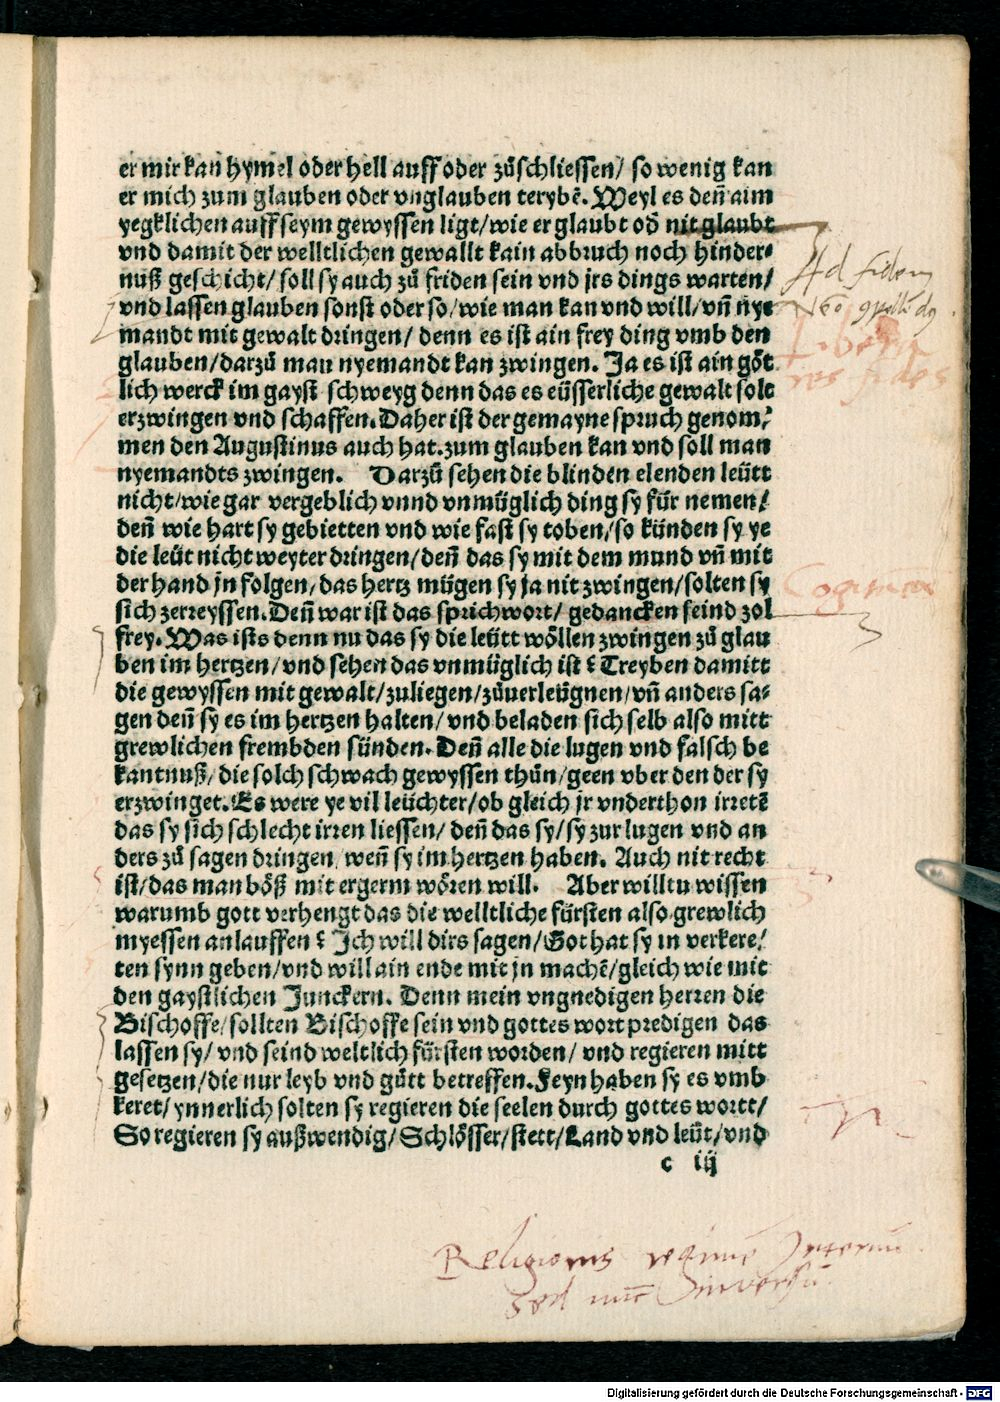 er mir kan hymel oder hell auff oder zůschliessen/ so wenig kan
er mich zum glauben oder vnglauben terybē. Weyl es deñ aim
yegklichen auff seym gewyssen ligt/ wie er glaubt od̄ nit glaubt
vnd damit der welltlichen gewallt kain abbruch noch hinder⸗
nuß geschicht/ soll sy auch zů friden sein vnd jrs dings warten/
vnd lassen glauben sonst oder so/ wie man kan vnd will/ vñ nye
mandt mit gewalt dringen/ denn es ist ain frey ding vmb den
glauben/ darzů man nyemandt kan zwingen. Ja es ist ain göt
lich werck im gayst schweyg denn das es eüsserliche gewalt solt
erzwingen vnd schaffen. Daher ist der gemayne spruch genom⸗
men den Augustinus auch hat. zum glauben kan vnd soll man
nyemandts zwingen. Darzů sehen die blinden elenden leütt
nicht/ wie gar vergeblich vnnd vnmüglich ding sy für nemen/
deñ wie hart sy gebietten vnd wie fast sy toben/ so künden sy ye
die leüt nicht weyter dringen/ deñ das sy mit dem mund vñ mit
der hand jn folgen/ das hertz mügen sy ja nit zwingen/ solten sy
sich zerreyssen. Deñ war ist das sprichwort/ gedancken seind zol
frey. Was ists denn nu das sy die leütt wöllen zwingen zů glau
ben im hertzen/ vnd sehen das vnmüglich ist? Treyben damitt
die gewyssen mit gewalt/ zuliegen/ zůuerleügnen/ vñ anders sa⸗
gen deñ sy es im hertzen halten/ vnd beladen sich selb also mitt
grewlichen frembden sünden. Deñ alle die lugen vnd falsch be
kantnuß/ die solch schwach gewyssen thůn/ geen vber den der sy
erzwinget. Es were ye vil leüchter/ ob gleich jr vnderthon irretē
das sy sich schlecht irren liessen/ deñ das sy/ sy zur lugen vnd an
ders zů sagen dringen/ weñ sy im hertzen haben. Auch nit recht
ist/ das man böß mit ergerm wören will. Aber willtu wissen
warumb gott verhengt das die welltliche fürsten also grewlich
myessen anlauffen? Ich will dirs sagen/ Got hat sy in verkere⸗
ten synn geben/ vnd will ain ende mit jn machē/ gleich wie mit
den gaystlichen Junckern. Denn mein vngnedigen herren die
Bischoffe/ sollten Bischoffe sein vnd gottes wort predigen das
lassen sy/ vnd seind weltlich fürsten worden/ vnd regieren mitt
gesetzen/ die nur leyb vnd gůtt betreffen. Feyn haben sy es vmb
keret/ ynnerlich solten sy regieren die seelen durch gottes wortt/
So regieren sy außwendig/ Schlösser/ stett/ Land vnd leüt/ vnd
c iij
Ad fidem
Libera
res fides
Religionis regimē Internū
sed nūc Inversū
Digitalisierung gefördert durch die Deutsche Forschungsgemeinschaft - DFG